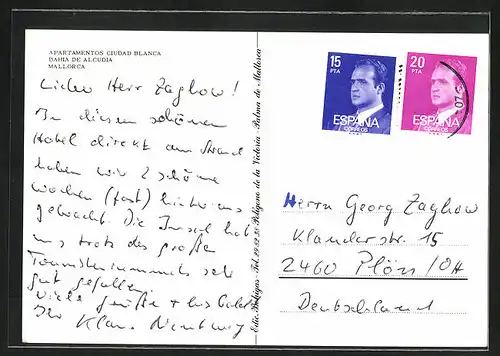 APARTAMENTOS CIUDAD BLANCA
BAHIA DE ALCUDIA
MALLORCA
Lieber Herr Zaghow!
In diesem schönen
Hotel direkt am Strand
haben wir 2 schöne
Wochen (fast) hinter uns
gebracht. Die Insel hat
uns trotz des großen
Touristenrummels sehr
gut gefallen.
Viele Grüße + bis
Ihr Klaus
Palma de Mallorca
15
PTA
ESPAÑA
CORREOS
20
PTA
ESPAÑA
CORREOS
Herrn Georg Zaghow
Klanderstr. 15
2460 Plön/OH
Deutschland